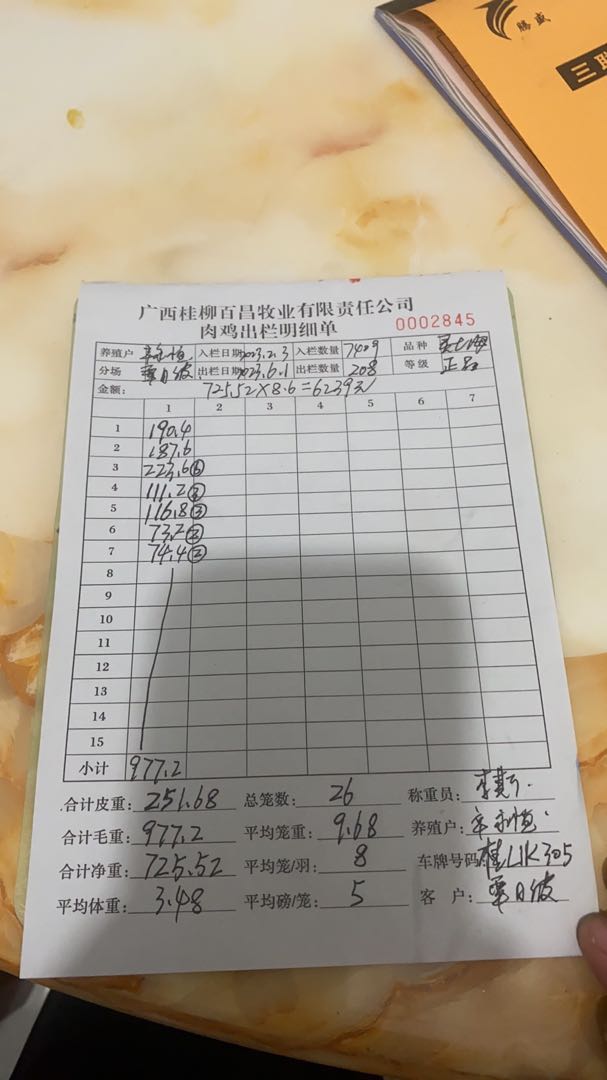 腾盛
三联
广西桂柳百昌牧业有限责任公司
肉鸡出栏明细单
0002845
养殖户 入栏日期 2023.2.3 入栏数量 7409 品种
分场 覃日波 出栏日期 2023.6.1 出栏数量 208 等级 正品
金额: 725.52×8.6=6239元
1 2 3 4 5 6 7
1 190.4
2 187.6
3 223.6⑥
4 111.2③
5 116.8③
6 73.2②
7 74.4②
8
9
10
11
12
13
14
15
小计 977.2
合计皮重: 251.68 总笼数: 26 称重员:
合计毛重: 977.2 平均笼重: 9.68 养殖户:
合计净重: 725.52 平均笼/羽: 8 车牌号码: 桂L1K305
平均体重: 3.48 平均磅/笼: 5 客户: 覃日波